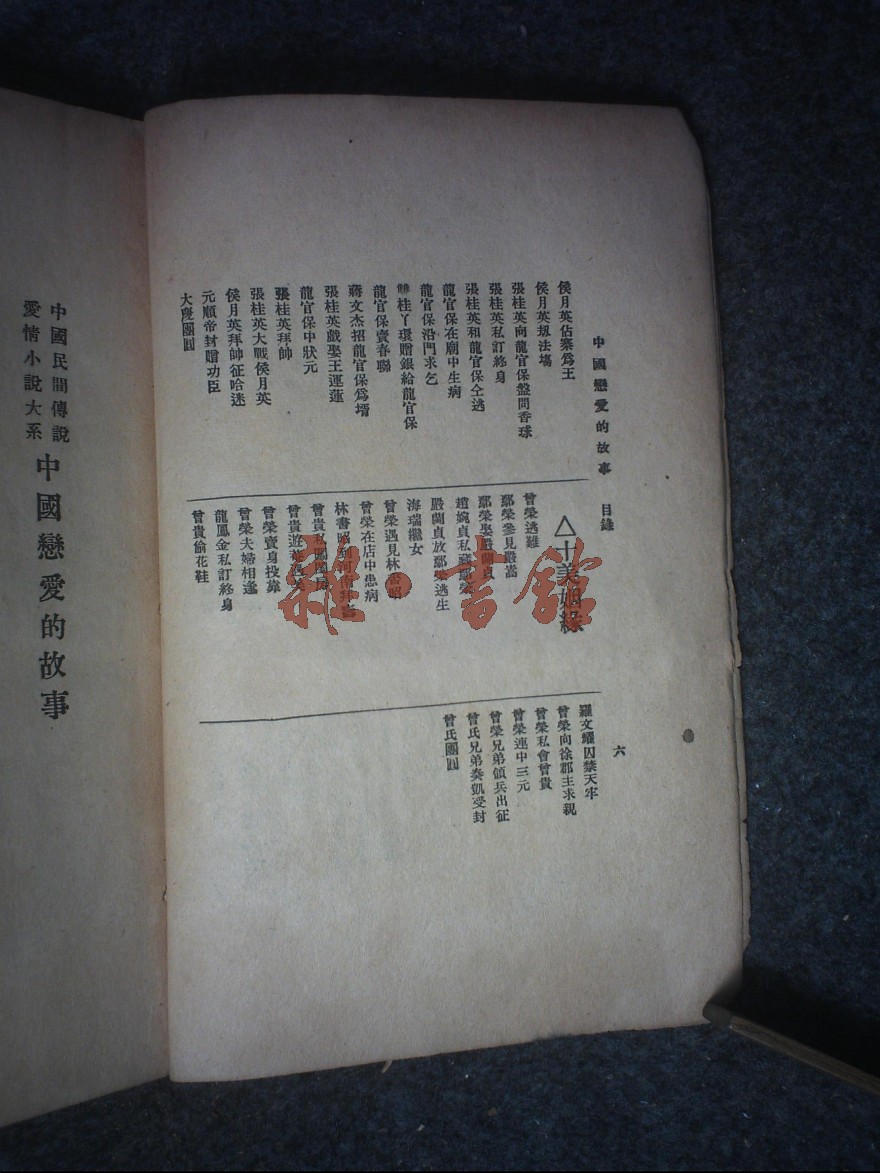 中國戀愛的故事 目錄
六
侯月英佔寨爲王
侯月英刼法塲
張桂英向龍官保盤問香球
張桂英私訂終身
張桂英和龍官保仝逃
龍官保在廟中生病
龍官保沿門求乞
雙桂丫環贈銀給龍官保
龍官保賣春聯
蔣文杰招龍官保爲壻
張桂英戲娶王運蓮
龍官保中狀元
張桂英拜帥
張桂英大戰侯月英
侯月英拜帥征哈迷
元順帝封贈功臣
大慶團圓
△十美姻緣
曾榮逃難
鄢榮參見嚴嵩
鄢榮娶嚴蘭貞
趙婉貞私藏鄢榮
嚴蘭貞放鄢榮逃生
海瑞繼女
曾榮遇見林書昭
曾榮在店中患病
林書昭到河南拜壽
曾貴私
曾貴遊
曾榮賣身投靠
曾榮夫婦相逢
龍鳳金私訂終身
曾貴偷花鞋
羅文耀囚禁天牢
曾榮向徐郡主求親
曾榮私會曾貴
曾榮連中三元
曾榮兄弟領兵出征
曾氏兄弟奏凱受封
曾氏團圓
中國民間傳說
愛情小說大系
中國戀愛的故事
雜·書館